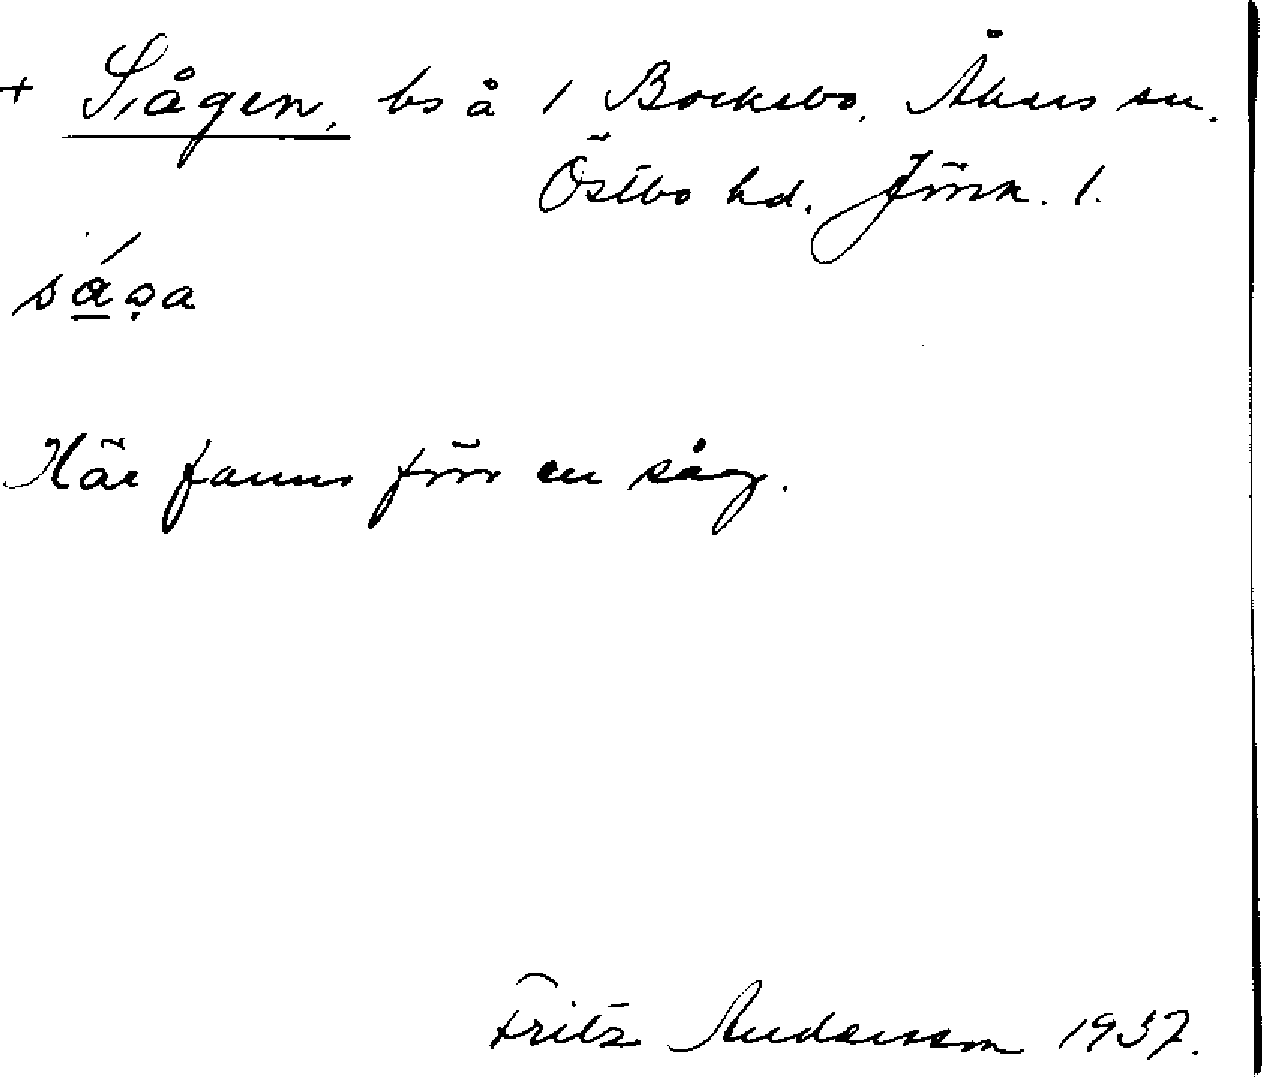 + Sågen, bs å 1 Bocksbo, Åkers sn.
Östbo hd. Jönk. l.
såga
Här fanns förr en såg.
Fritz Andersson 1937.